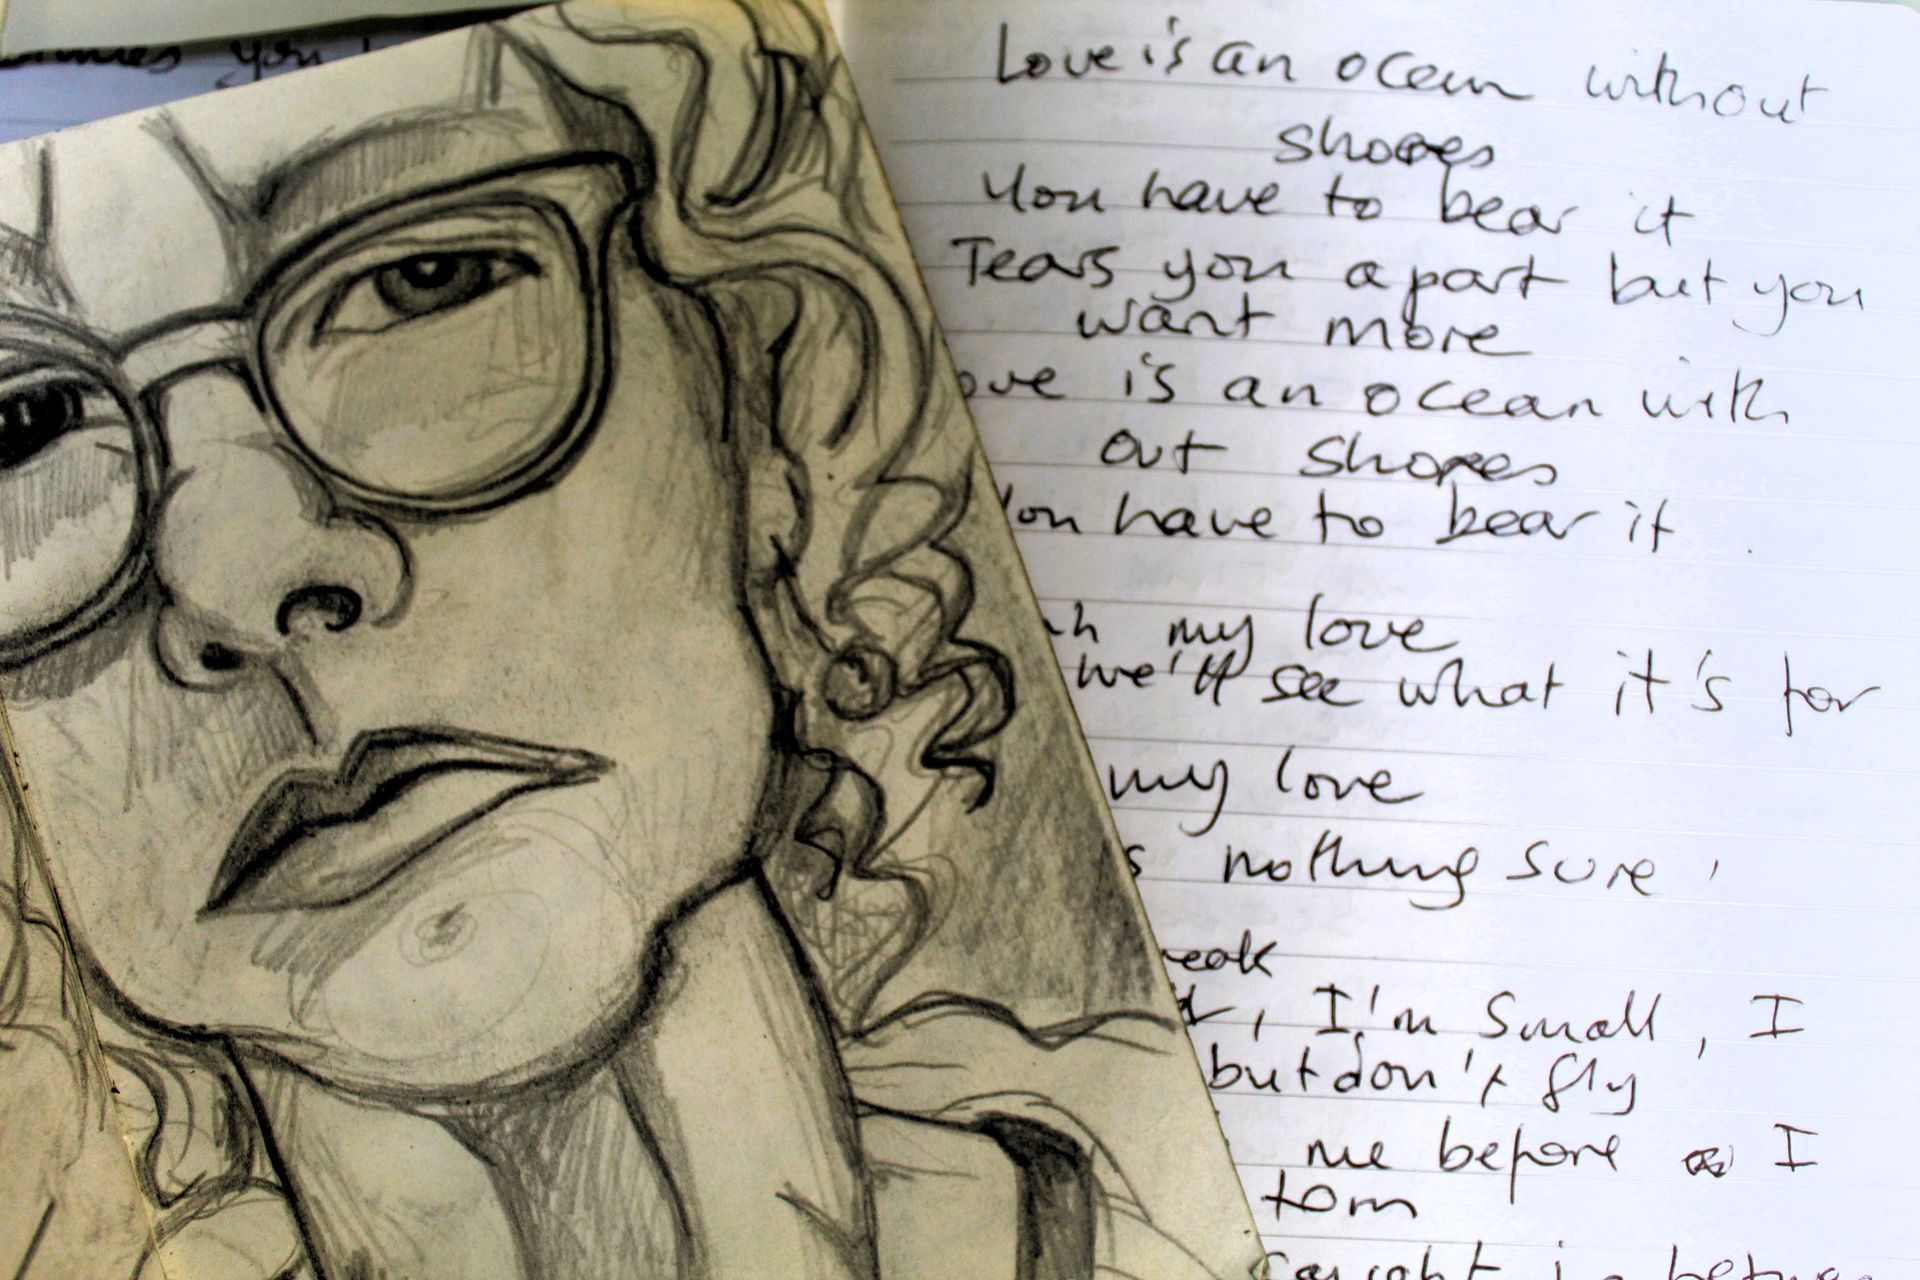 you
Love is an ocean without
shores
You have to bear it
Tears you apart but you
want more
ove is an ocean with
out shores
You have to bear it
my love
we'll see what it's for
my love
s nothing sure
eak
, I'm small, I
but don't fly
me before I
torn
caught in between